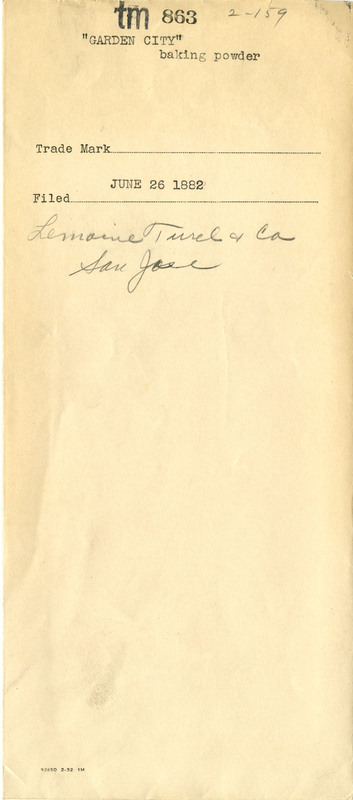 tm 863 2-159
"GARDEN CITY"
baking powder
Trade Mark
JUNE 26 1882
Filed
Lemoine Turel & Co
San Jose